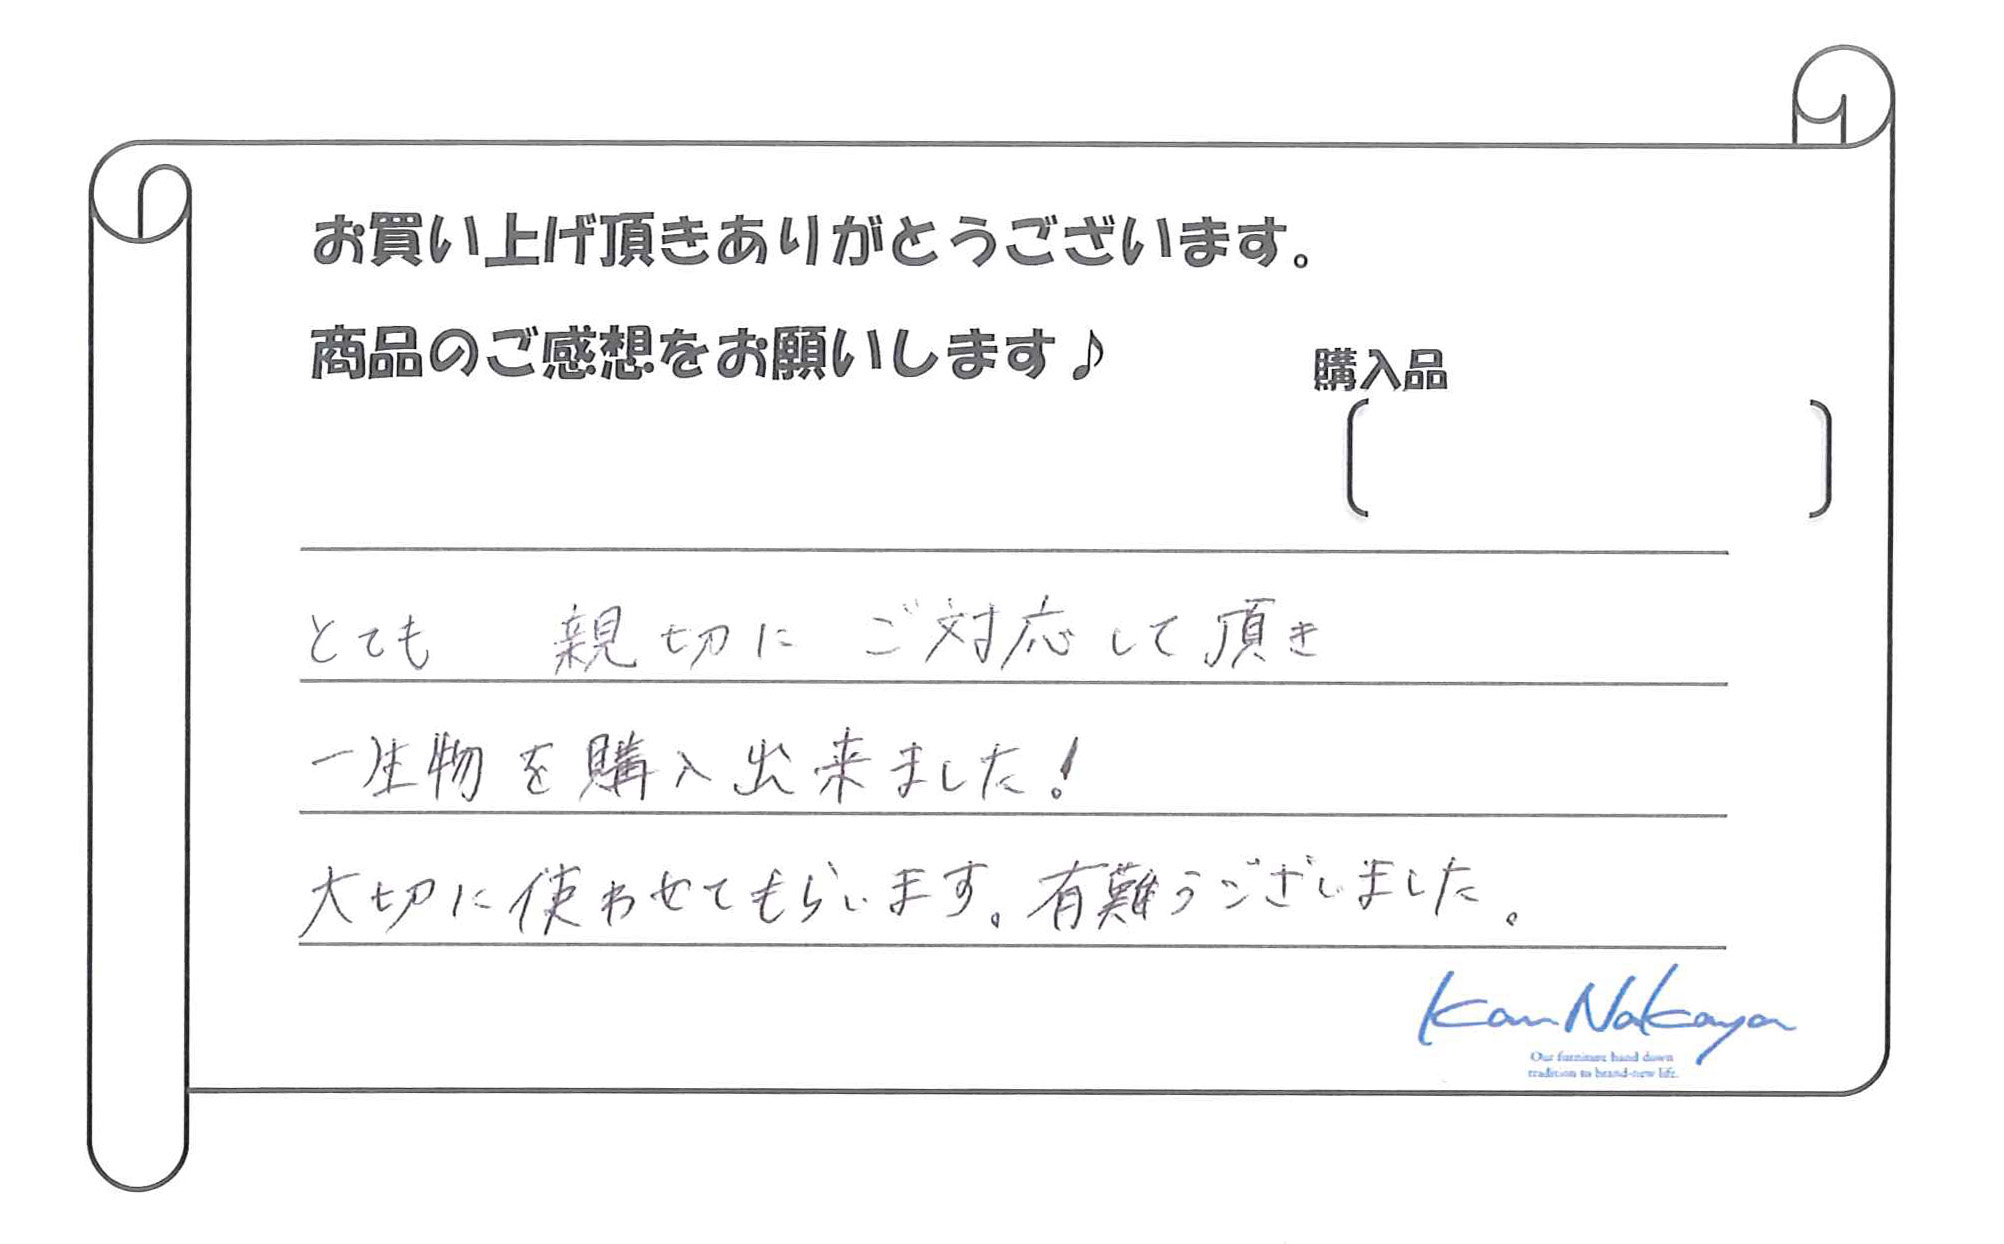 お買い上げ頂きありがとうございます。
商品のご感想をお願いします♪
購入品
とても 親切に ご対応して頂き
一生物を購入出来ました!
大切に使わせてもらいます。有難うございました。
Kan Nakaya
Our furniture hand down
tradition to brand-new life.